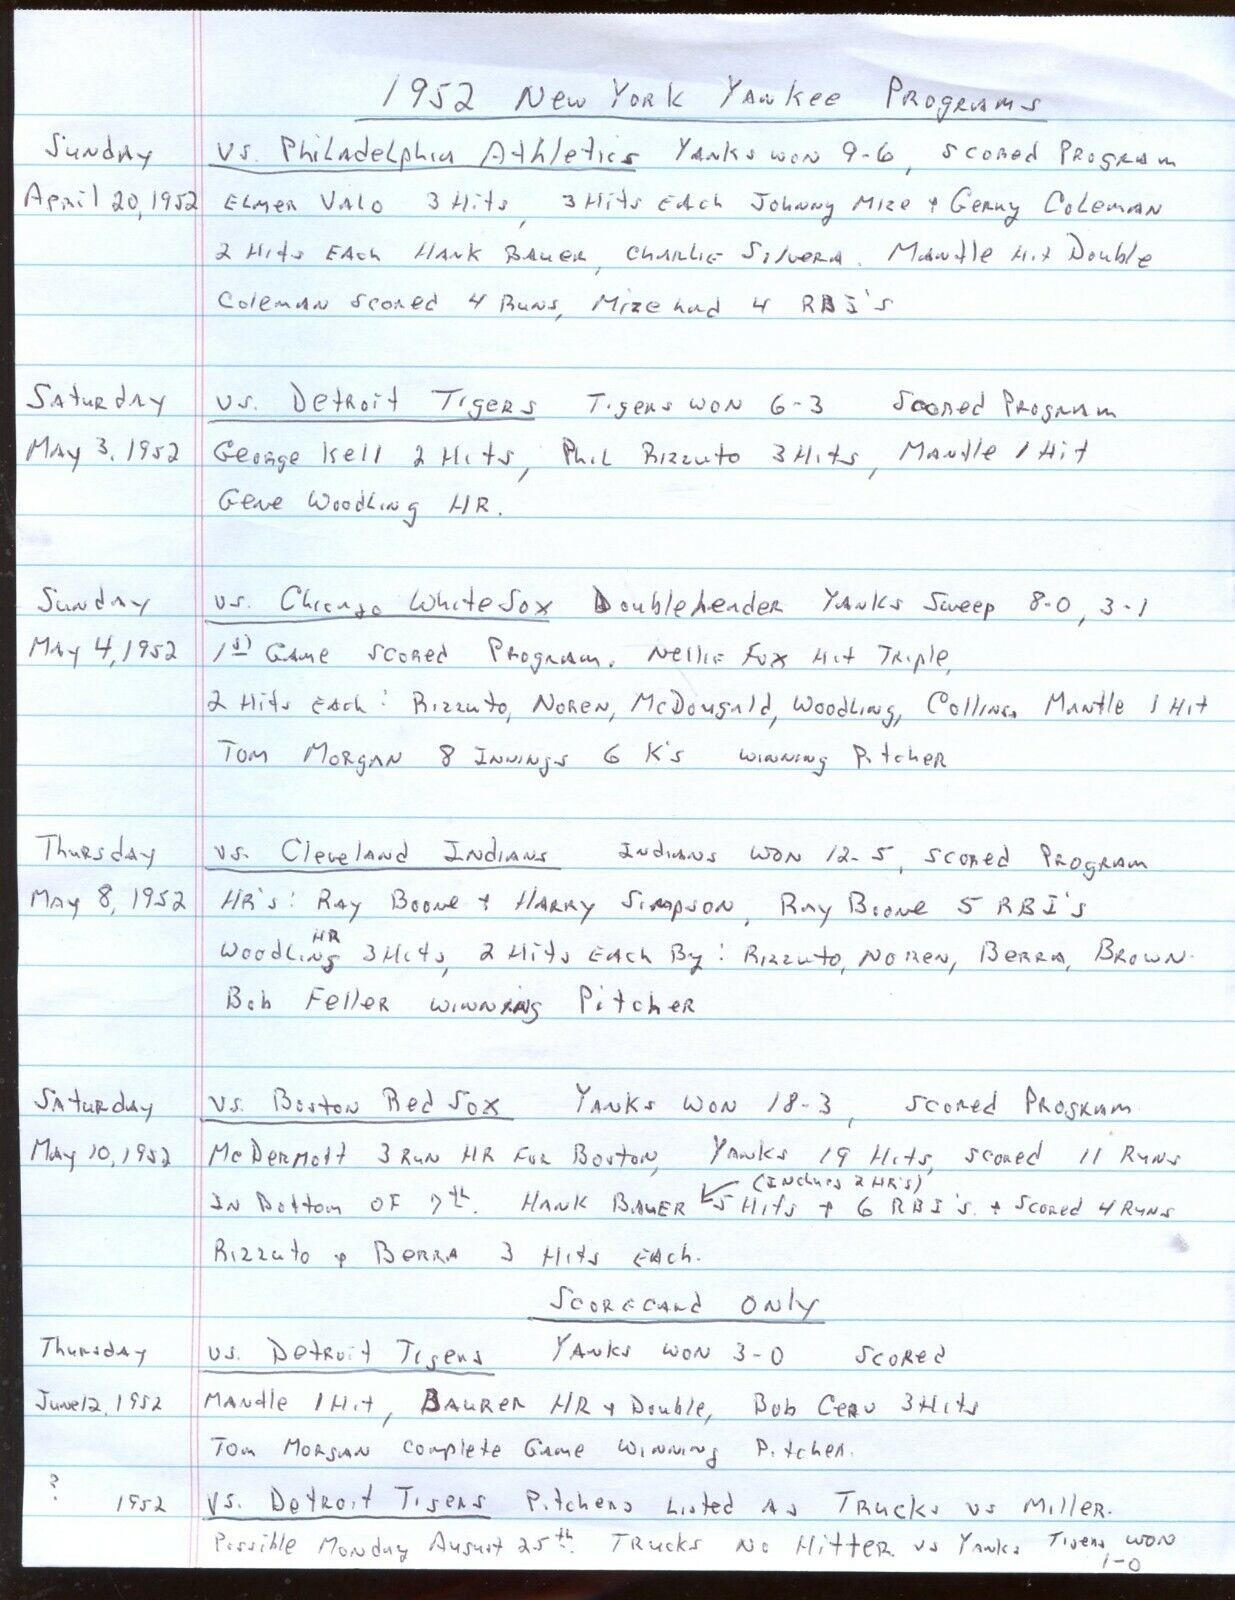 1952 New York Yankee Programs
Sunday vs. Philadelphia Athletics Yanks won 9-6, scored Program
April 20, 1952 Elmer Valo 3 Hits, 3 Hits Each Johnny Mize + Gerry Coleman
2 Hits Each Hank Bauer, Charlie Silvera. Mantle Hit Double
Coleman scored 4 Runs, Mize had 4 RBI's
Saturday vs. Detroit Tigers Tigers won 6-3 Scored Program
May 3, 1952 George Kell 2 Hits, Phil Rizzuto 3 Hits, Mantle 1 Hit
Gene Woodling HR.
Sunday vs. Chicago White Sox Doubleheader Yanks Sweep 8-0, 3-1
May 4, 1952 1st Game scored Program. Nellie Fox Hit Triple,
2 Hits Each: Rizzuto, Noren, McDougald, Woodling, Collins, Mantle 1 Hit
Tom Morgan 8 Innings 6 K's winning Pitcher
Thursday vs. Cleveland Indians Indians won 12-5, scored Program
May 8, 1952 HR's: Ray Boone + Harry Simpson, Ray Boone 5 RBI's
HR
Woodling 3 Hits, 2 Hits Each By: Rizzuto, Noren, Berra, Brown.
Bob Feller winning Pitcher
Saturday vs. Boston Red Sox Yanks won 18-3, scored Program
May 10, 1952 McDermott 3 Run HR For Boston, Yanks 19 Hits, scored 11 Runs
(Includes 2 HR's)
In Bottom of 7th. Hank Bauer 5 Hits + 6 RBI's. + Scored 4 Runs
Rizzuto + Berra 3 Hits Each.
Scorecard Only
Thursday vs. Detroit Tigers Yanks won 3-0 Scored
June 12, 1952 Mantle 1 Hit, Baurer HR + Double, Bob Cerv 3 Hits
Tom Morgan complete Game Winning Pitcher.
? 1952 vs. Detroit Tigers Pitchers Listed As Trucks vs Miller.
Possible Monday August 25th. Trucks No Hitter vs Yanks Tigers won
1-0